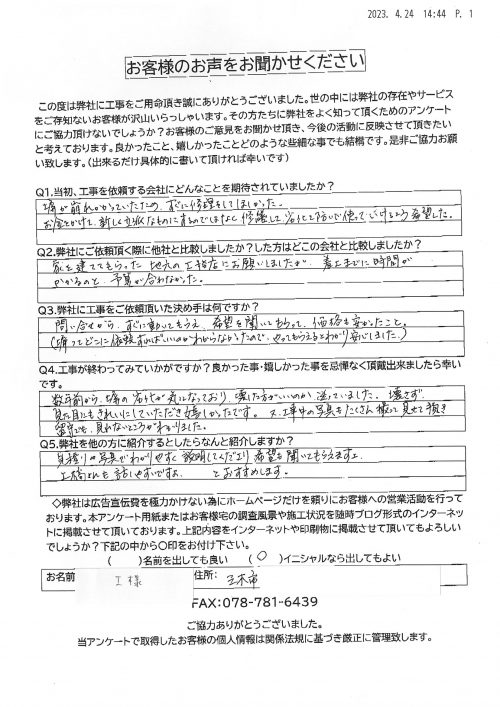 2023. 4.24 14:44 P. 1
お客様のお声をお聞かせください
この度は弊社に工事をご用命頂き誠にありがとうございました。世の中には弊社の存在やサービス
をご存知ないお客様が沢山いらっしゃいます。その方たちに弊社をよく知って頂くためのアンケート
にご協力頂けないでしょうか?お客様のご意見をお聞かせ頂き、今後の活動に反映させて頂きたい
と考えております。良かったこと、嬉しかったことどのような些細な事でも結構です。是非ご協力お願
い致します。(出来るだけ具体的に書いて頂ければ幸いです)
Q1.当初、工事を依頼する会社にどんなことを期待されていましたか?
塀が崩れかかっていたため、すぐに修理をしてほしかった。
お金をかけて、新しく立派なものにするのではなく 修繕して劣化を防いで使っていけるよう希望した。
Q2.弊社にご依頼頂く際に他社と比較しましたか?した方はどこの会社と比較しましたか?
家を建ててもらった 地元の工務店にお願いしましたが、着工までに時間が
かかるのと、予算が合わなかった。
Q3.弊社に工事をご依頼頂いた決め手は何ですか?
問い合せから、すぐに動いてもらえ、希望を聞いてもらって、価格も安かったこと。
(塀ってどこに依頼すればいいのかわからなかったので、やってもらえるとわかり安心しました。)
Q4.工事が終わってみていかがですか?良かった事・嬉しかった事を忌憚なく頂戴出来ましたら幸い
です。
数年前から、塀の劣化が気になっており、壊した方がいいのか 迷っていました。壊さず、
見た目にもきれいにしていただき嬉しかったです。又、工事中の写真もたくさん撮って見せて頂き
留守でも、見れないところがわかりました。
Q5.弊社を他の方に紹介するとしたらなんと紹介しますか?
見積りや写真でわかりやすく説明してくださり希望も聞いてもらえますよ。
工務さんも話しやすいですよ。 とおすすめします。
◇弊社は広告宣伝費を極力かけない為にホームページだけを頼りにお客様への営業活動を行って
おります。本アンケート用紙またはお客様宅の調査風景や施工状況を随時ブログ形式のインターネッ
トに掲載させて頂いております。上記内容をインターネットや印刷物に掲載させて頂いてもよろしい
でしょうか?下記の中から〇印をお付け下さい。
( )名前を出しても良い (〇)イニシャルなら出してもよい
お名前 I 様 住所: 三木市
FAX:078-781-6439
ご協力ありがとうございました。
当アンケートで取得したお客様の個人情報は関係法規に基づき厳正に管理致します。